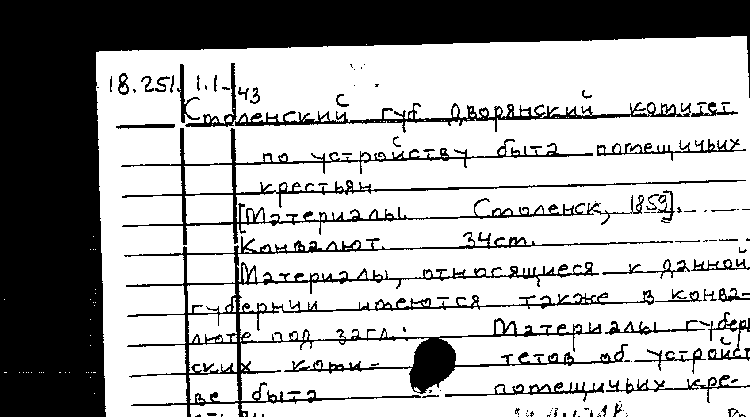 18.251. 1.1-43
Смоленский губ дворянский комитет
по устройству быта помещичьих
крестьян
[Материалы. Смоленск, 1859].
Конвалют. 34ст.
Материалы, относящиеся к данной
губернии имеются также в конва-
люте под загл.: Материалы губер
ских коми- тетов об устройст
ве быта помещичьих кре-